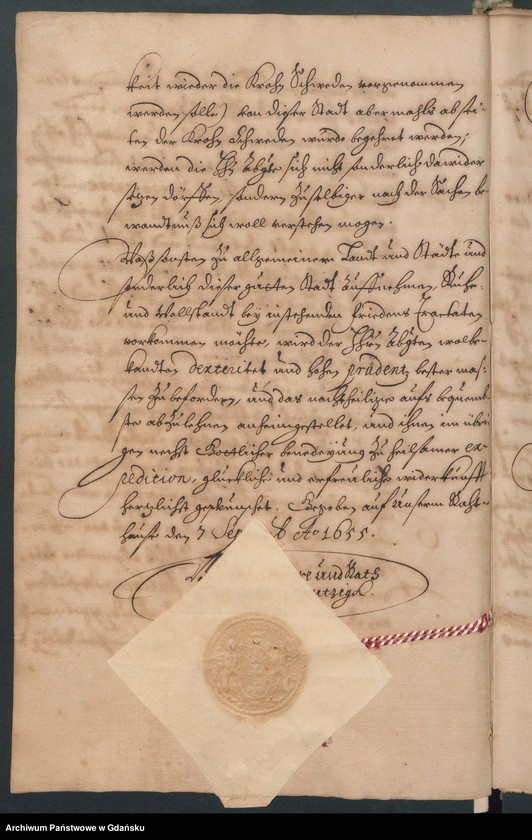 keit wieder die Krohn Schweden vorgenommen
werden solle) von dieser Stadt abermahls ab seì-
ten der Krohn Schweden würde begehret werden;
werden die HH Abgte sich nicht sonderlich dawider
setzen dörffen, sondern zu selbiger nach der Sachen be-
wandtnuß sich woll verstehen mogen.
Waß sonsten zu allgemeinem Landt und Städte und
sonderlich dieser gutten Stadt auffnehmen, Ruhe
und Wollstandt bey instehenden friedens Tractaten
vorkommen möchte, wird der HHn Abgten wolbe-
kandten dexteritet und hohen prudentz bester mas-
sen zu befordern, und das nachtheilige auffs bequem-
ste abzulehnen anheimgestellet, und ihnen im übri-
gen nechst Göttlicher benedeyung zu heilsamer ex-
pedition, glückliche und erfreuliche wiederkunfft
hertzlichst gewünschet. Gegeben auf Unserm Raht-
hause den 7 Sep b Ao 1655.
und Rats
ntzigk.
Archiwum Państwowe w Gdańsku